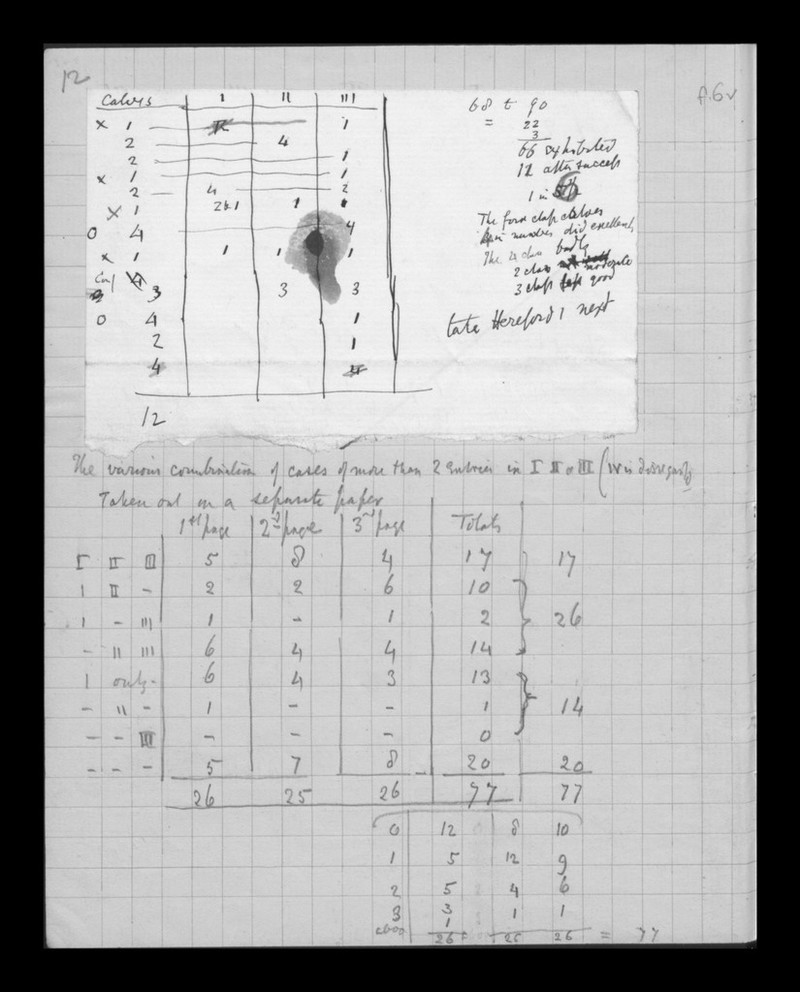 12
f.6v
Calves I II III
x 1 1
2 4
2 1
x 1 1
2 4 2
x 1 2+1 1
0 4 4
x 1 1 1 1
3 3 3
0 4 1
2 1
4 4
12
68 to 90
= 22
3
66 exhibited
12 after success
1 in
The first class calves
in numbers did excellently
The 2d class badly
2 class moderate
3 class good
take Hereford 1 next
The various combination of cases of more than 2 Entries in I II or III (IV is disregarded
Taken out on a separate paper
1st page 2nd page 3rd page Totals
I II III 5 8 4 17 17
I II - 2 2 6 10
I - III 1 - 1 2 26
- II III 6 4 4 14
I only - 6 4 3 13
- II - 1 - - 1 14
- - III - - - 0
- - - 5 7 8 20 20
26 25 26 77 77
0 12 8 10
1 5 12 9
2 5 4 6
3 3 1 1
above 1
26 25 26 = 77